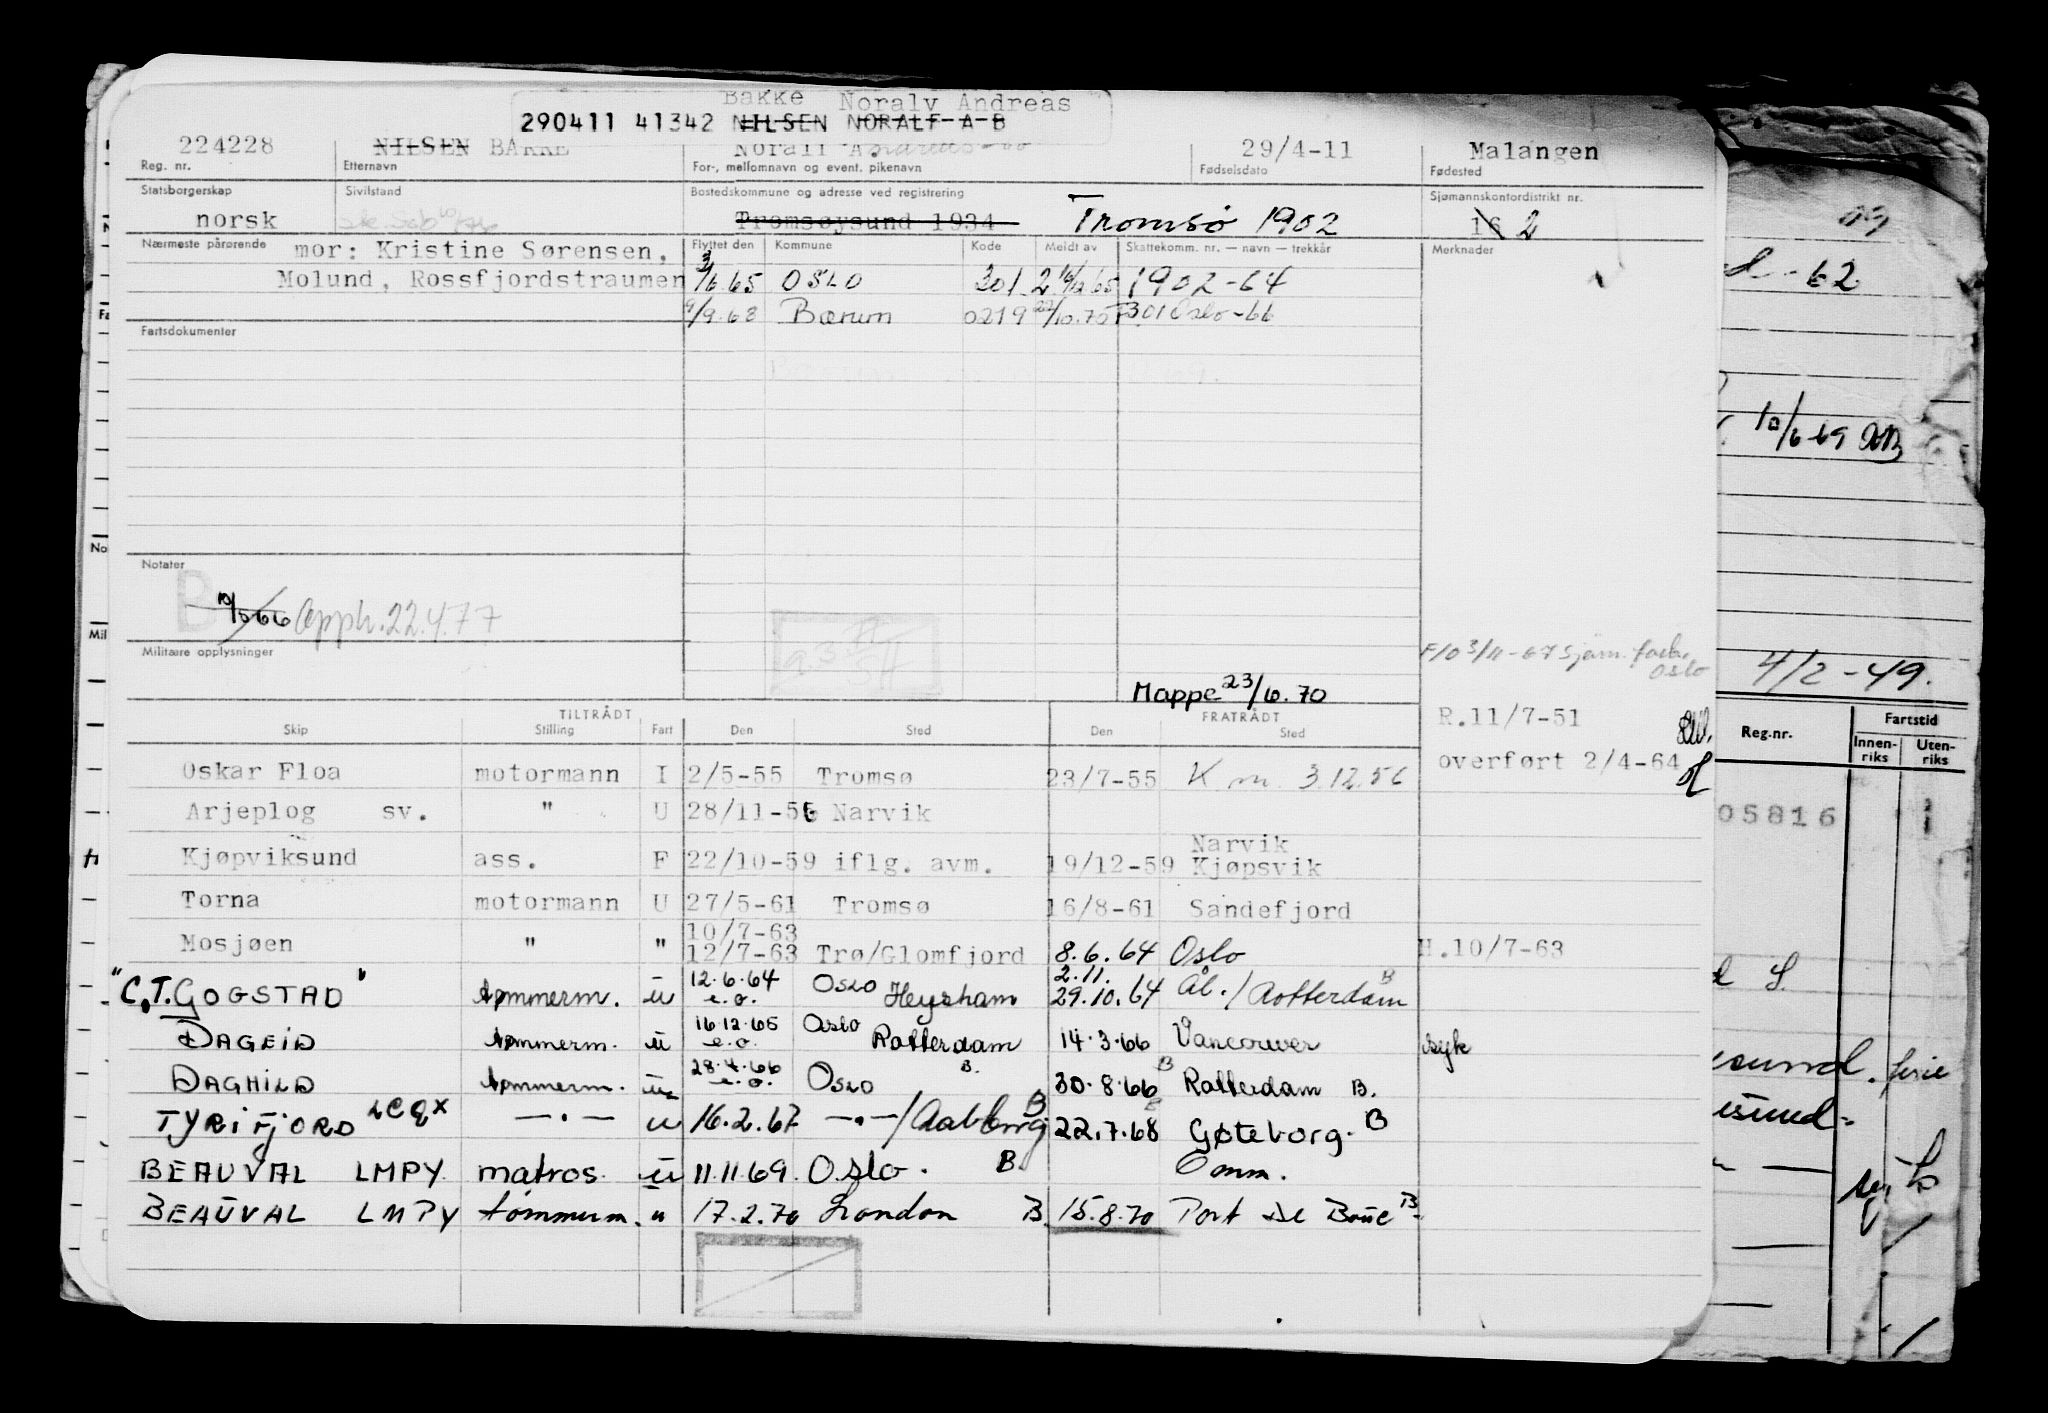 Bakke Noralv Andreas
290411 41342 NILSEN NORALF A B
224228 NILSEN BAKKE Noralf Andreas 29/4-11 Malangen
Reg. nr. Etternavn For-, mellomnavn og event. pikenavn Fødselsdato Fødested
Statsborgerskap Sivilstand Bostedskommune og adresse ved registrering Sjømannskontordistrikt nr.
norsk Tromsøysund 1934 Tromsø 1902 16 2
Nærmeste pårørende mor: Kristine Sørensen, Flyttet den Kommune Kode Meldt av Skattekomm. nr. — navn — trekkår Merknader
Molund, Rossfjordstraumen 3/6 65 OSLO 301 2 65 1902-64
9/9.68 Bærum 0219 22/10.70 301 Oslo-66
Fartsdokumenter
Notater
Opph. 22.4.77
Militære opplysninger
F/O 3/11-67 Sjøm. Oslo
Mappe 23/6.70
TILTRÅDT FRATRÅDT R.11/7-51
Skip Stilling Fart Den Sted Den Sted
overført 2/4-64
Oskar Floa motormann I 2/5-55 Tromsø 23/7-55 K m 3.12.56
Arjeplog sv. " U 28/11-56 Narvik
Kjøpviksund ass. F 22/10-59 iflg. avm. 19/12-59 Narvik Kjøpsvik
Torna motormann U 27/5-61 Tromsø 16/8-61 Sandefjord
Mosjøen " " 10/7-63 12/7-63 Trø/Glomfjord 8.6.64 Oslo H.10/7-63
"C.T. GOGSTAD" tømmerm. u 12.6.64 e.o. Oslo Heysham 2.11. 29.10.64 Ål./Rotterdam B
DAGEID tømmerm. u 16.12.65 e.o. Oslo Rotterdam 14.3.66 Vancouver syk
DAGHILD tømmerm. u 28.4.66 e.o. Oslo B. 30.8.66 B Rotterdam B.
TYRIFJORD LCQX —"— u 16.2.67 —"—/Aalborg B 22.7.68 Gøteborg. B
BEAUVAL LMPY matros. u 11.11.69. Oslo. B. Omm.
BEAUVAL LMPY tømmerm. u 17.2.70 London B. 15.8.70 Port de Bouc B.
62
10/6-69
4/2-49.
Reg.nr. Fartstid
Innenriks Utenriks
05816